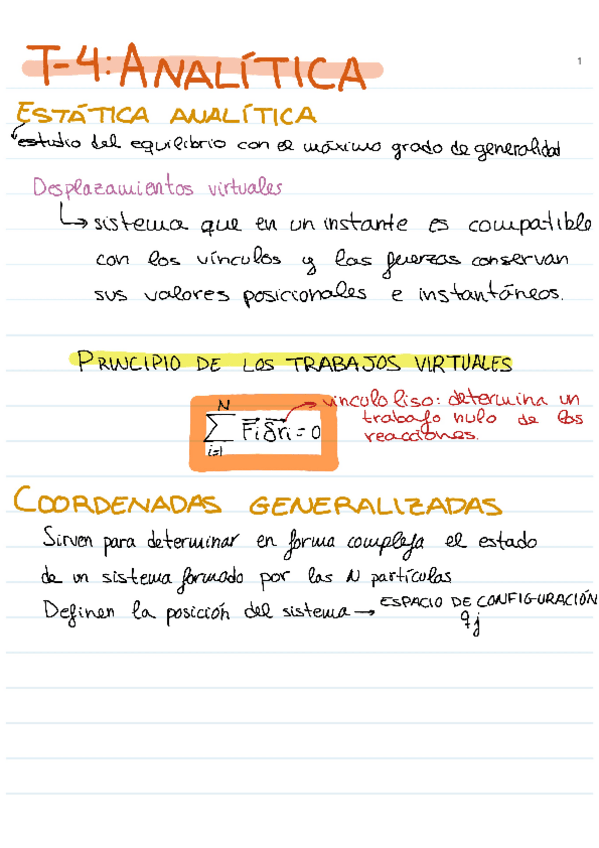 T-4: ANALÍTICA
1
ESTÁTICA ANALÍTICA
estudio del equilibrio con el máximo grado de generalidad
Desplazamientos virtuales
↳ sistema que en un instante es compatible
con los vínculos y las fuerzas conservan
sus valores posicionales e instantáneos.
PRINCIPIO DE LOS TRABAJOS VIRTUALES
N
∑ Fi δri = 0
i=1
→ vinculo liso: determina un
trabajo nulo de las
reacciones.
COORDENADAS GENERALIZADAS
Sirven para determinar en forma compleja el estado
de un sistema formado por las N partículas
Definen la posición del sistema → ESPACIO DE CONFIGURACIÓN
qj